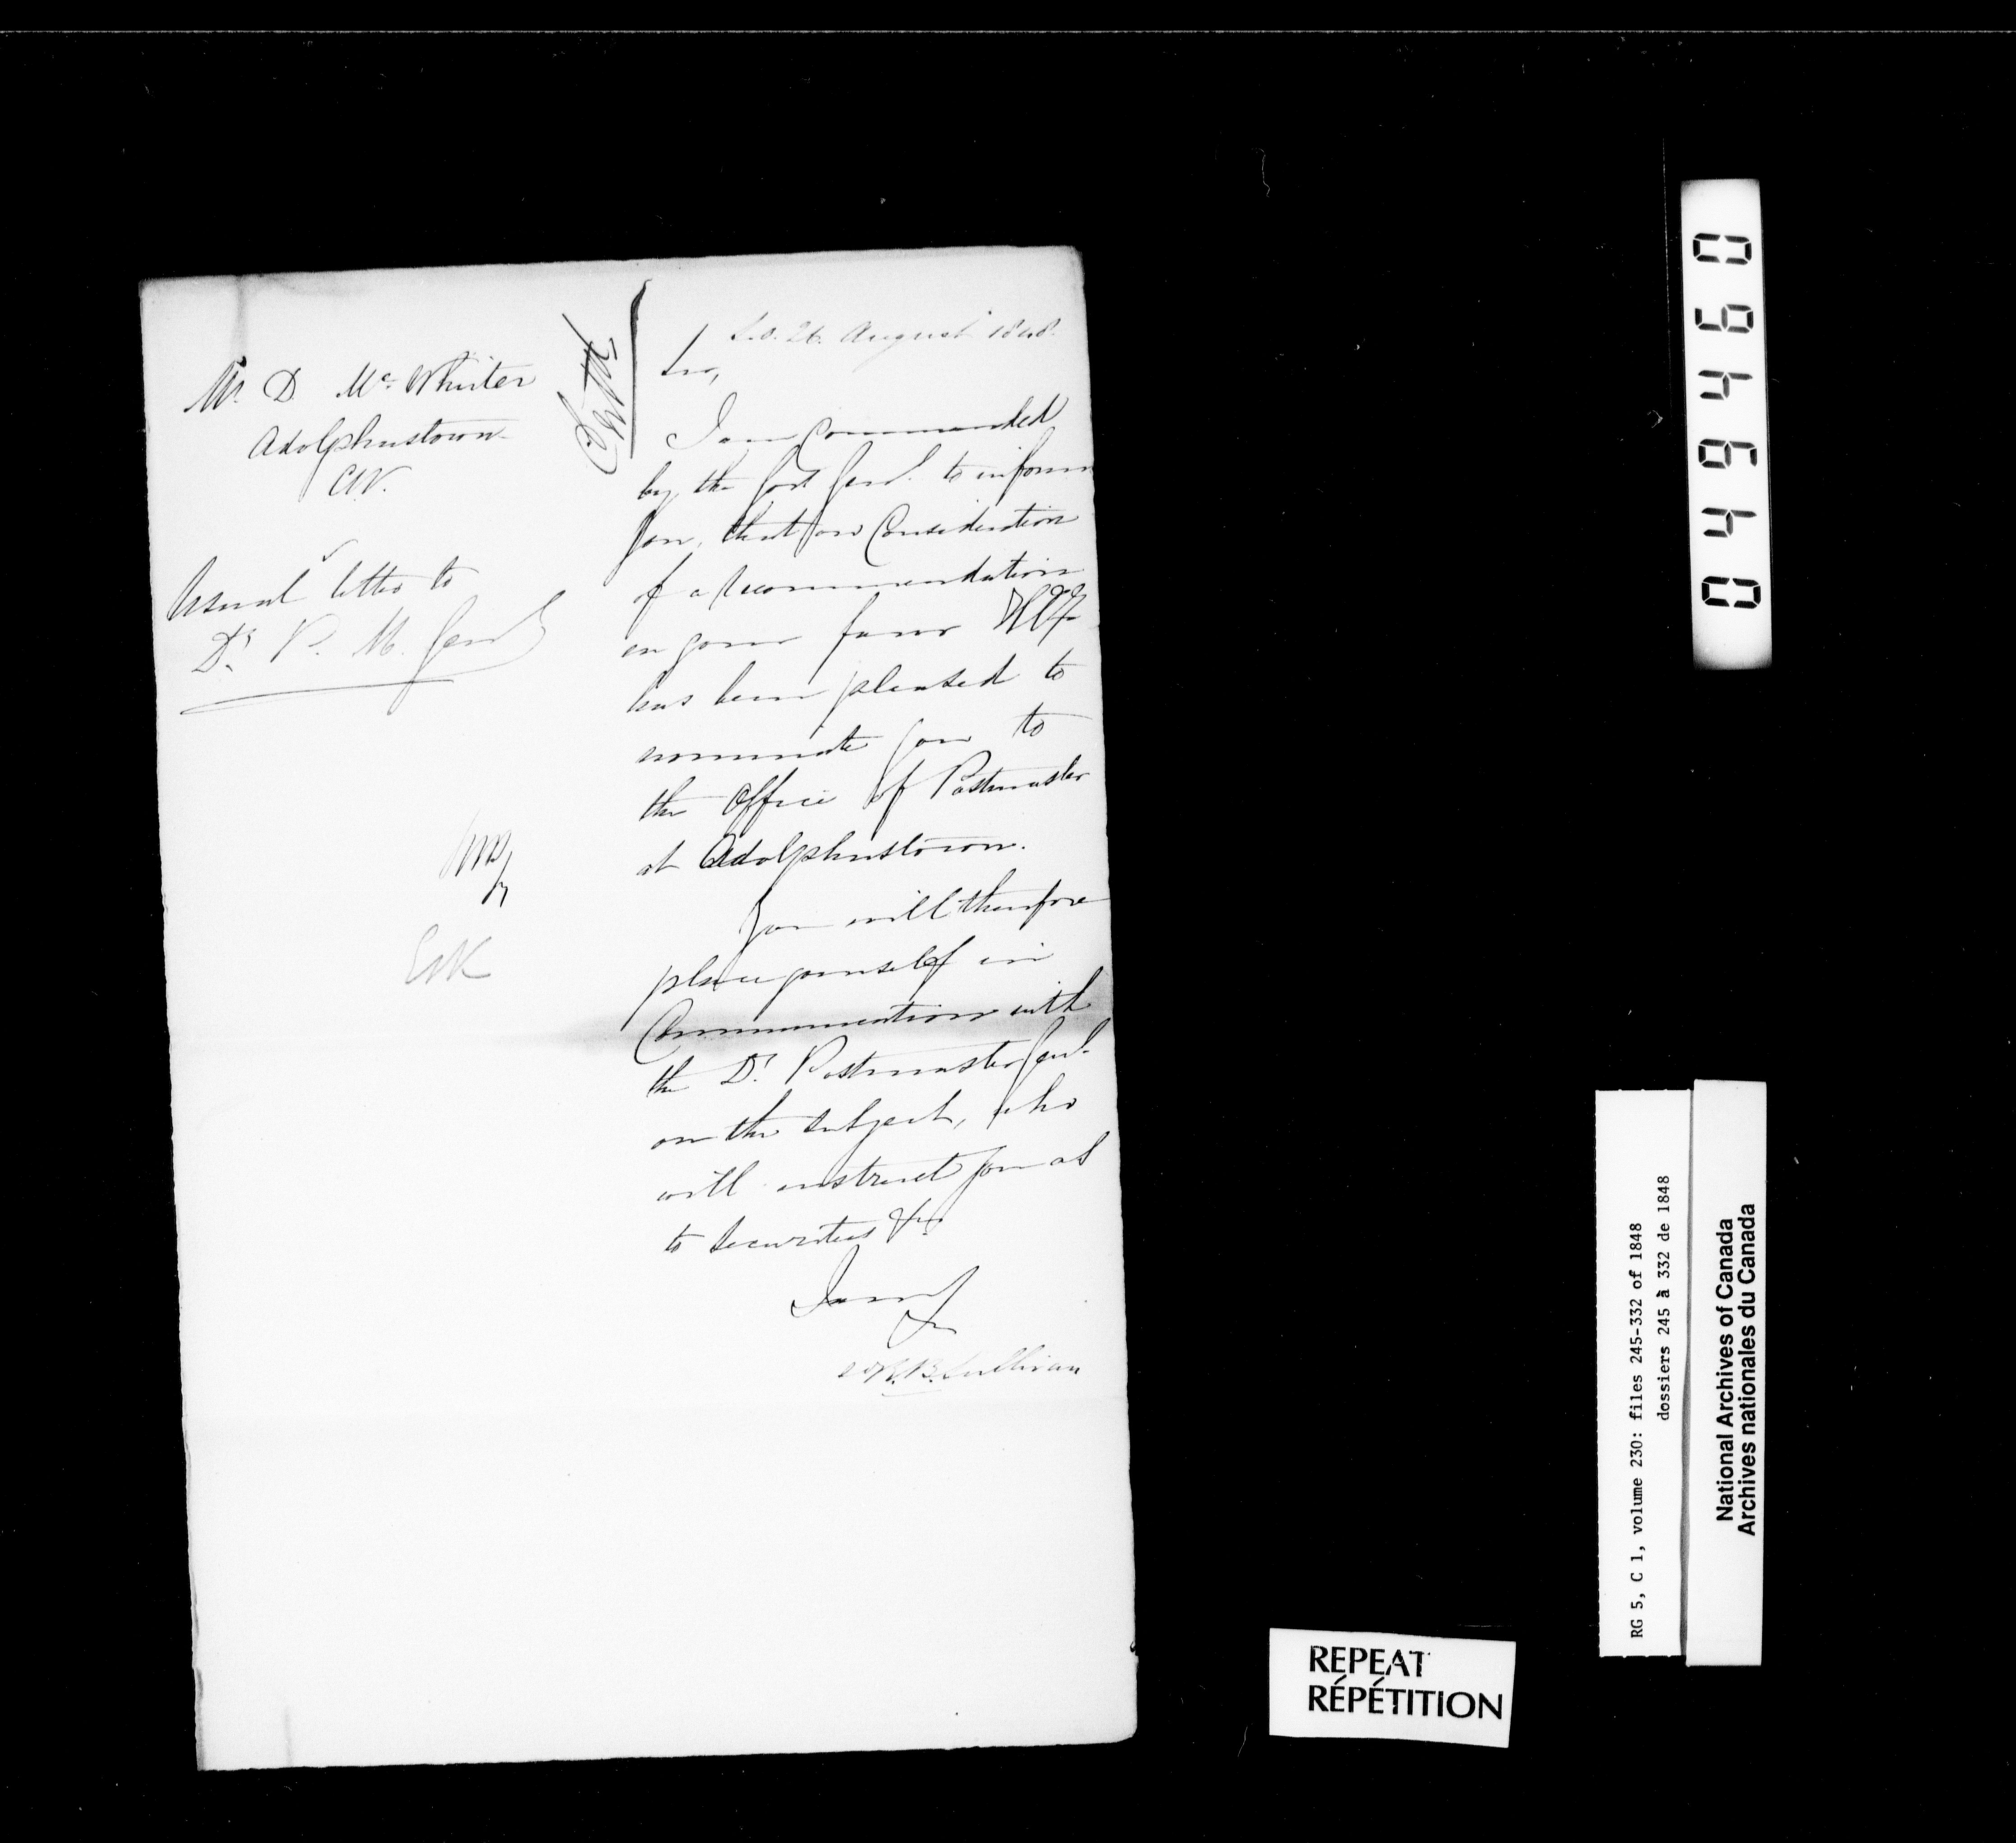 Mr. D McWhirter
Adolphustown
C.W.
Usual letter to
Dy. P. M. Genl
S.O. 26. August 1848.
Sir,
I am Commanded
by the Govr Genl. to inform
you, that on Consideration
of a recommendation
in your favor H Ex
has been pleased to
nominate you to
the Office of Postmaster
at Adolphustown.
You will therefore
place yourself in
Communication with
the Dy. Postmaster Genl.
on the subject, who
will instruct you as
to Securities &c
I am
&c
R.B. Sullivan
049460
RG 5, C 1, volume 230: files 245-332 of 1848
dossiers 245 à 332 de 1848
National Archives of Canada
Archives nationales du Canada
REPEAT
RÉPÉTITION